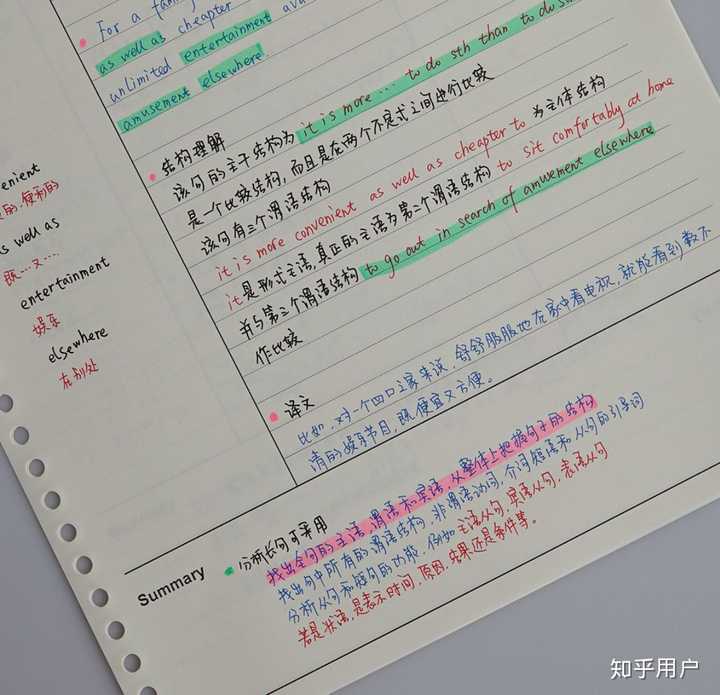 For a fam
as well as cheaper
unlimited entertainment ava
amusement elsewhere!
结构理解
该句的主干结构为 it is more … to do sth than to do s
是一个比较结构,而且是在两个不定式之间进行比较
该句有三个谓语结构
it is more convenient as well as cheapter to 为主体结构
it 是形式主语,真正的主语为第二个谓语结构 to sit comfortably at home
并与第三个谓语结构 to go out in search of amuement elsewhere
作比较
译文
比如,对一个四口之家来说,舒舒服服地在家中看电视,就能看到数不
清的娱乐节目,既便宜又方便。
enient
的.便利的
s well as
既…又…
entertainment
娱乐
elsewhere
在别处
Summary
分析长句可采用
找出全句的主语,谓语和宾语,从整体上把握句子的结构
找出句中所有的谓语结构,非谓语动词,介词短语和从句的引导词
分析从句和短句的功能,例如主语从句,宾语从句,表语从句
若是状语,是表示时间,原因,结果还是条件等。
知乎用户